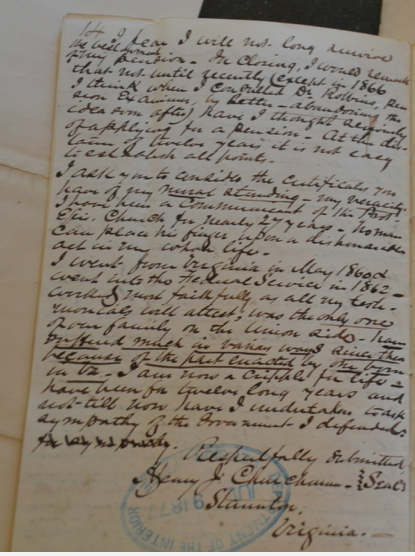 14. I fear I will not long survive
the bestowment
of my pension - In closing, I would remark
that not until recently (except in 1866
I think when I consulted Dr. Robins, Pen
sion Examiner, by letter - abandoning the
idea soon after) have I thought seriously
of applying for a pension - At the dis
tance of twelve years it is not easy
to establish all points.
I ask you to consider the certificates you
have of my moral standing - my veracity.
I have been a Communicant of the Prot
Epis. Church for nearly 27 years - No man
can place his finger upon a dishonorable
act in my whole life.
I went from Virginia in May 1860 &
went into the Federal Service in 1862 -
worked most faithfully as all my testi-
monials will attest, was the only one
of our family on the Union side - have
suffered much in various ways since then
because of the part enacted by one born
in Va - I am now a cripple for life -
have been for twelve long years and
not till now have I undertaken to ask
sympathy of the Government I defended
Respectfully submitted
Henry J. Churchman {Seal}
Staunton,
Virginia.
DEPARTMENT OF THE INTERIOR
1877